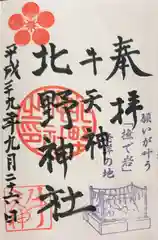 奉拝
願いが叶う
「撫で岩」
牛天神
北野神社
平成二十九年九月二十六日